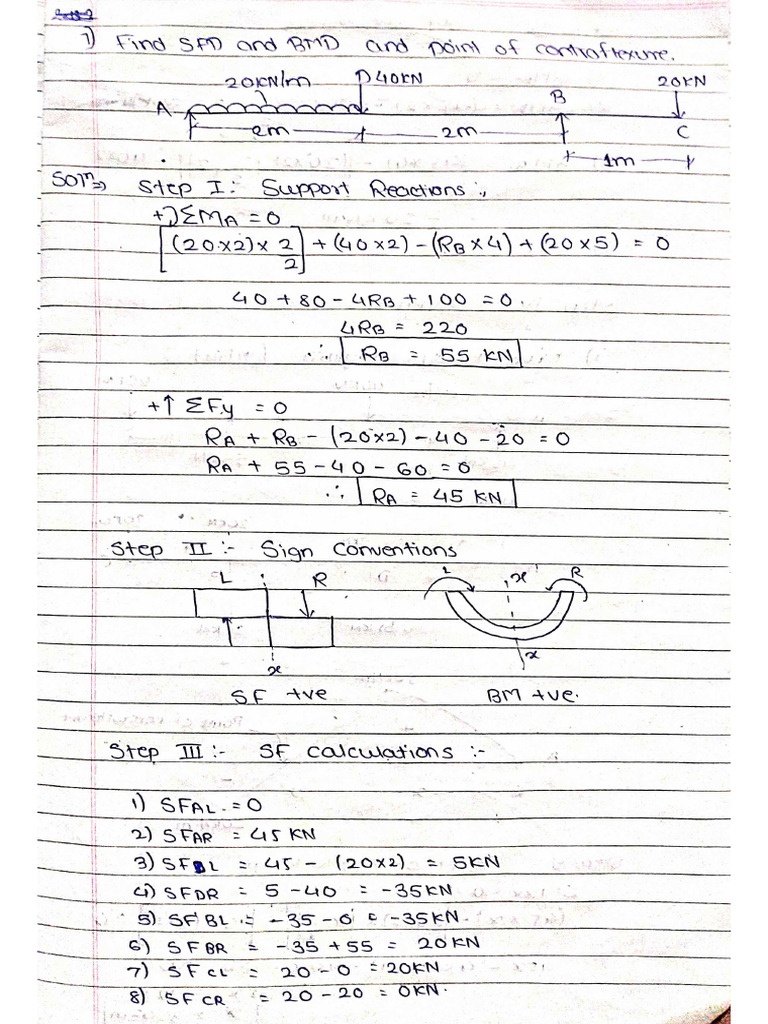 1) Find SFD and BMD and point of contraflexure.
20KN/m D 40KN B 20KN
A
2m 2m C
1m
Solⁿ⇒ Step I:- Support Reactions:-
+↻ΣMA = 0
[(20×2)× 2/2] + (40×2) - (RB×4) + (20×5) = 0
40 + 80 - 4RB + 100 = 0.
4RB = 220
∴ RB = 55 KN
+↑ ΣFy = 0
RA + RB - (20×2) - 40 - 20 = 0
RA + 55 - 40 - 60 = 0
∴ RA = 45 KN
Step II :- Sign Conventions
L R L x' R
x x
SF +ve BM +ve.
Step III :- SF calculations :-
1) SFAL = 0
2) SFAR = 45 KN
3) SFDL = 45 - (20×2) = 5KN
4) SFDR = 5 - 40 = -35KN
5) SFBL = -35 - 0 = -35KN
6) SFBR = -35 + 55 = 20KN
7) SFCL = 20 - 0 = 20KN
8) SFCR = 20 - 20 = 0KN.